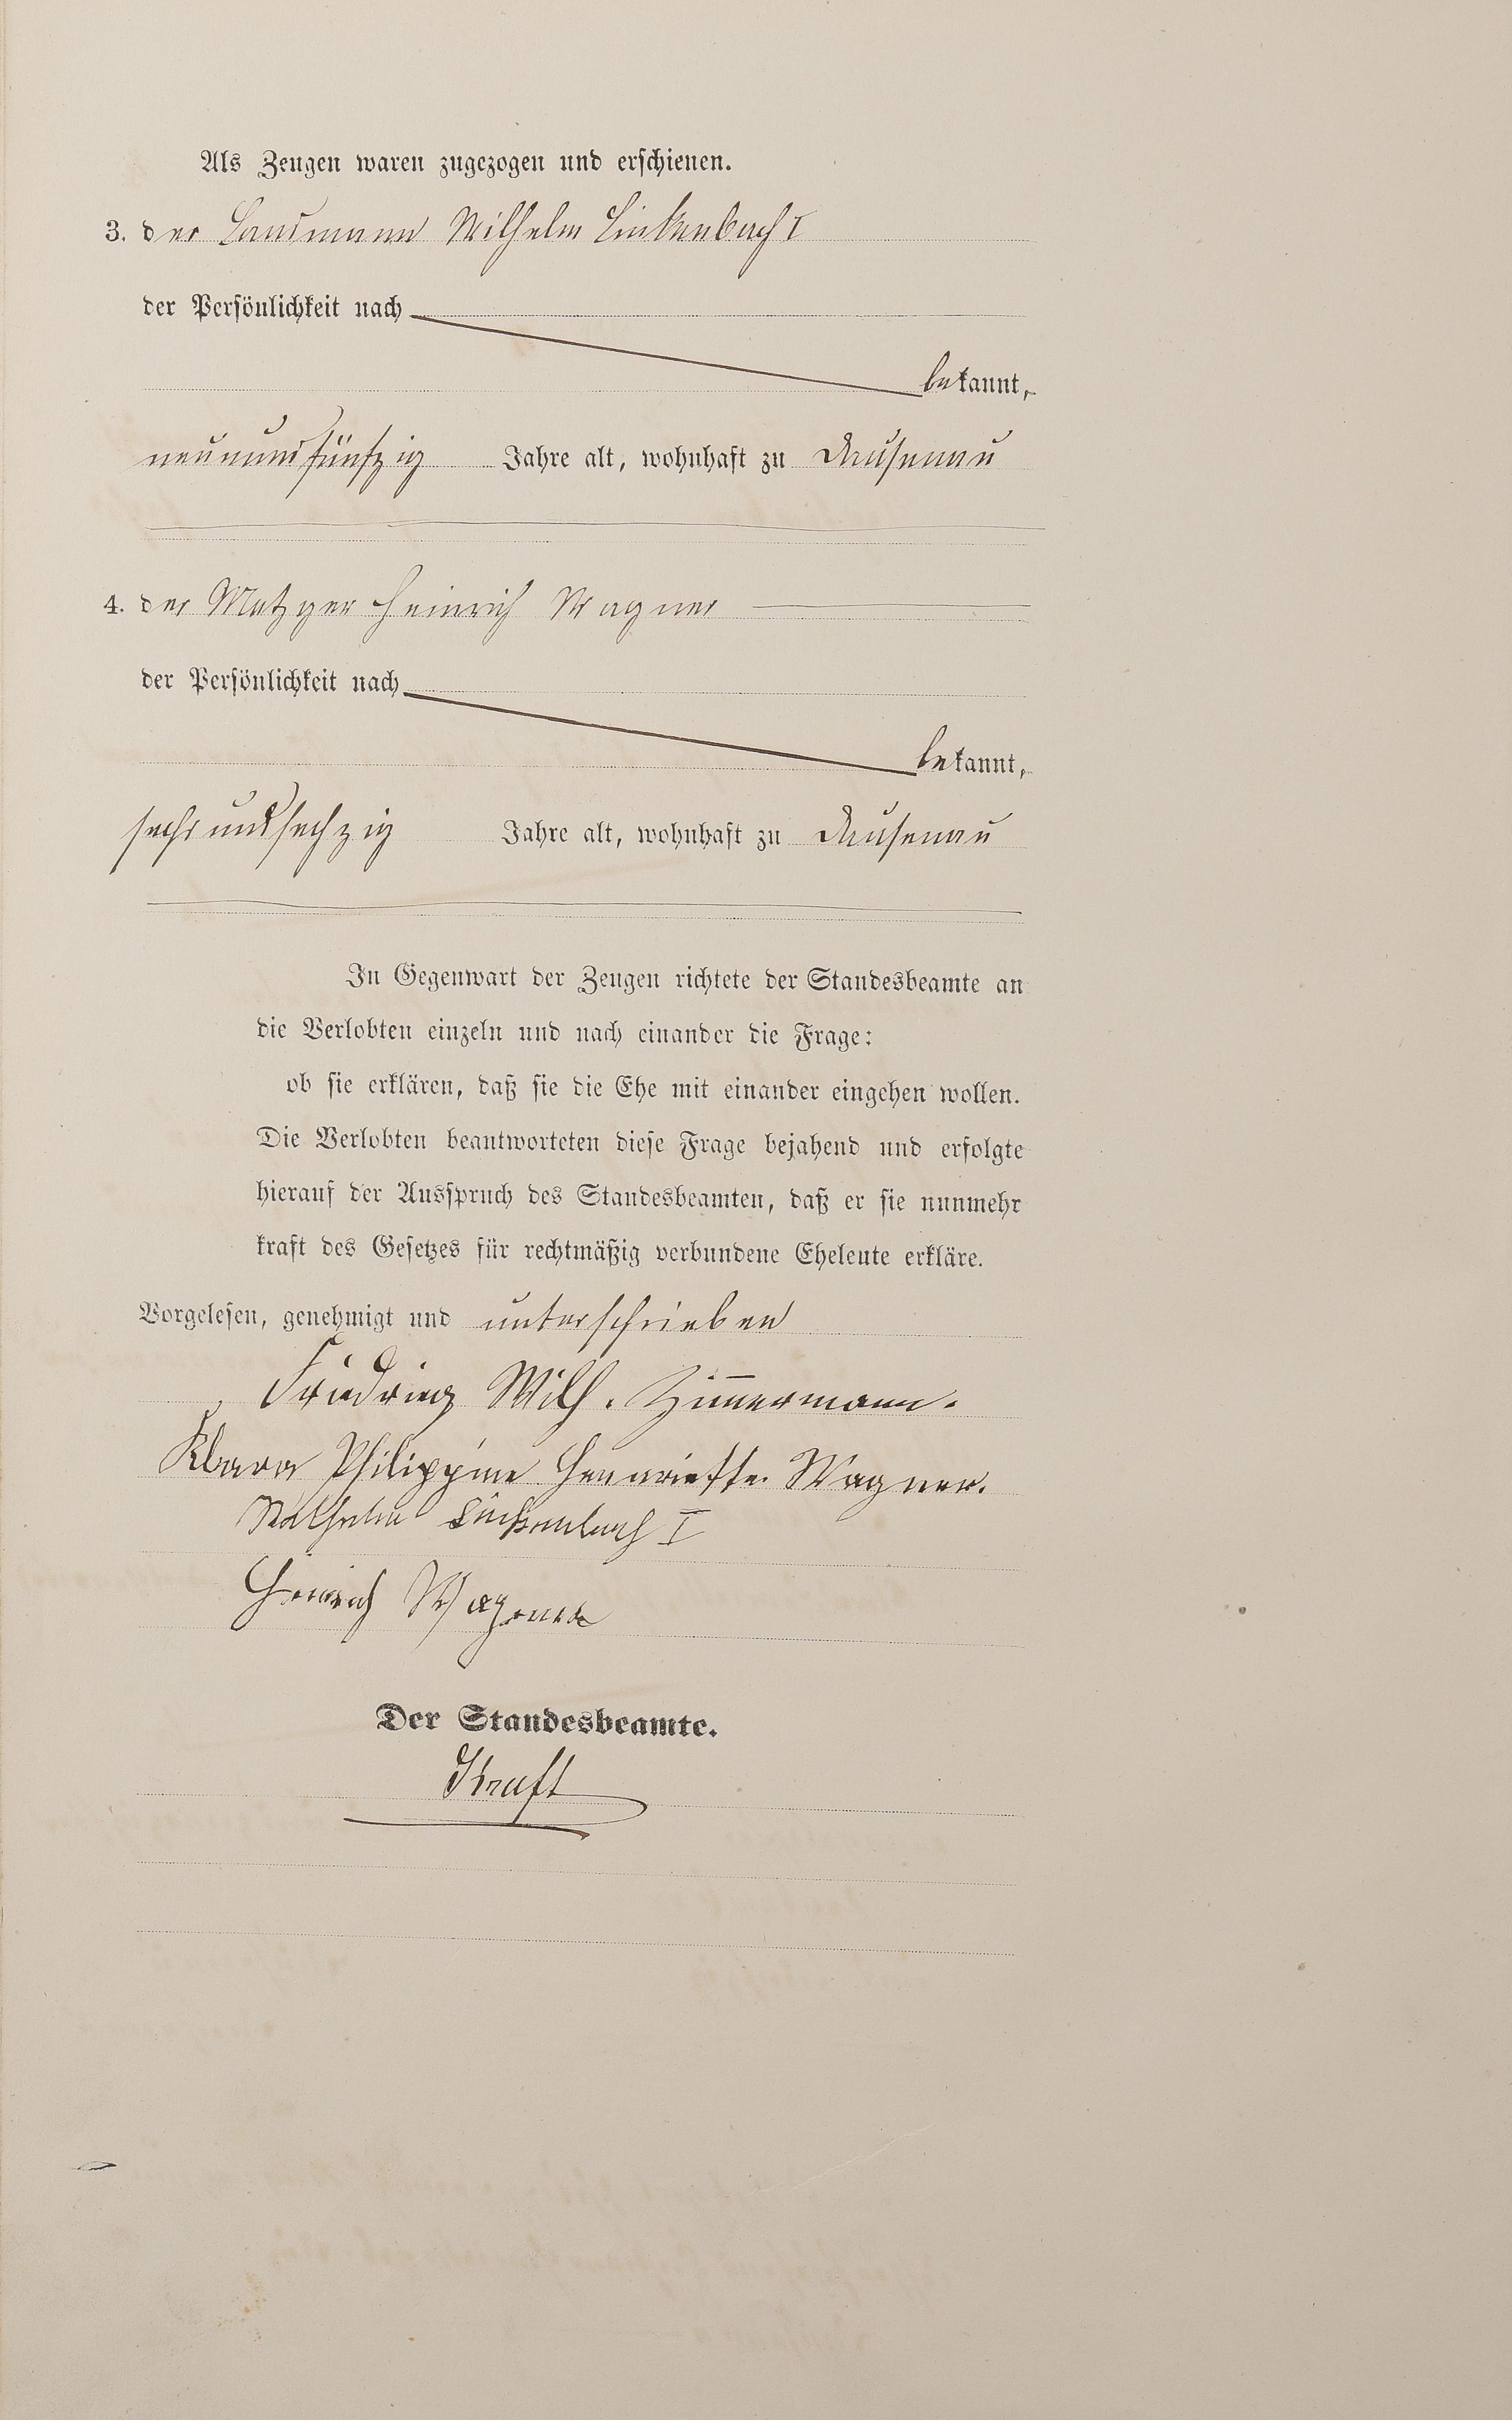 Als Zeugen waren zugezogen und erschienen.
3. der Landmann Wilhelm Linkenbach I
der Persönlichkeit nach
bekannt,
neunundfünfzig Jahre alt, wohnhaft zu Dausenau
4. der Metzger Heinrich Wagner
der Persönlichkeit nach
bekannt,
sechsundsechzig Jahre alt, wohnhaft zu Dausenau
In Gegenwart der Zeugen richtete der Standesbeamte an
die Verlobten einzeln und nach einander die Frage:
ob sie erklären, daß sie die Ehe mit einander eingehen wollen.
Die Verlobten beantworteten diese Frage bejahend und erfolgte
hierauf der Ausspruch des Standesbeamten, daß er sie nunmehr
kraft des Gesetzes für rechtmäßig verbundene Eheleute erkläre.
Vorgelesen, genehmigt und unterschrieben
Friedrich Wilh. Zimmermann.
Klara Philippine Henriette Wagner.
Wilhelm Linkenbach I
Heinrich Wagner
Der Standesbeamte.
Kraft